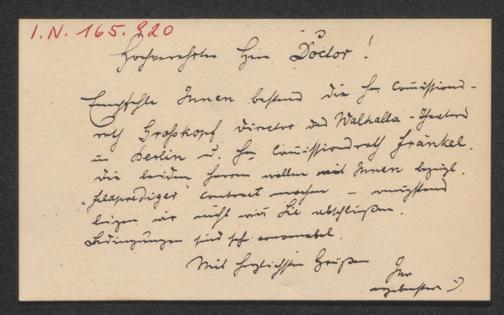 I.N. 165.820
Hochverehrter Herr Doctor!
Empfehle Ihnen bestens die H. Commissions-
rath Großkopf Director des Walhalla-Theaters
in Berlin u. H. Commissionsrath Fränkel.
die beiden Herren wollen mit Ihnen bezügl.
"Feldprediger" Contract machen –
wir nicht Sie abschließen.
Bedingungen sind sehr
Mit herzlichsten Grüßen Ihr
ergebenster